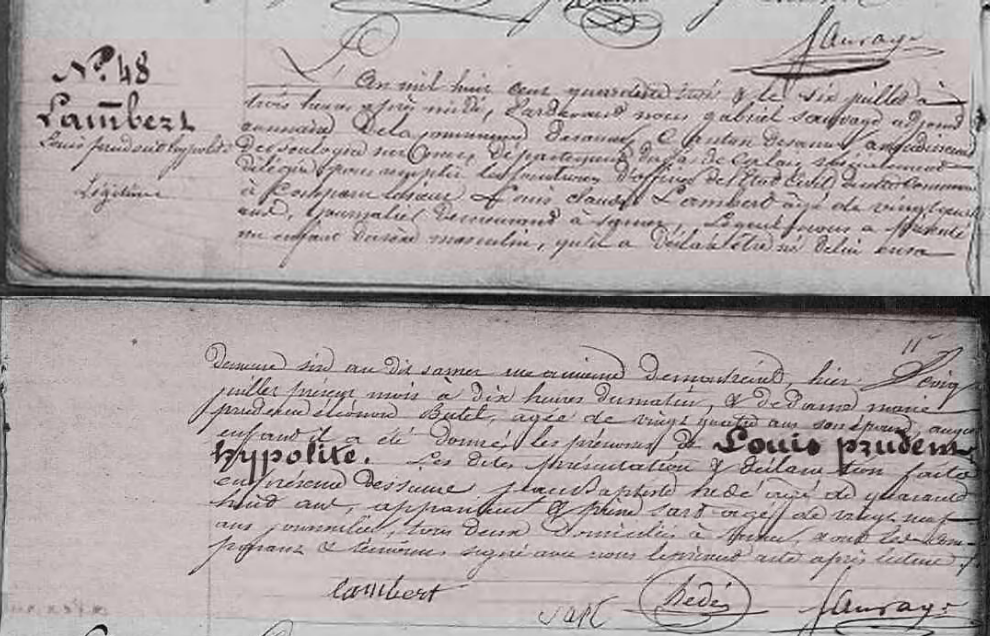 Sauvage
N°. 48
Lambert
Louis prudent hypolite
Légitime
L'An mil huit cent quarante trois & le six juillet à
trois heures après midi, Pardevant nous gabriel Sauvage adjoint
au maire De la commune Desamer, Canton Desamer, arrondissement
De boulogne sur Mer, Département du pas de Calais spécialement
délégué pour remplir les fonctions D'officier de l'Etat Civil de cette Commune
à Comparu le sieur Louis Lambert agé de vingt
ans, journalier demeurant à Samer. Lequel nous a présenté
un enfant du sexe masculin, qu'il a Déclaré être né de lui en sa
demeure sise au dit samer rue ancienne de montreuil, hier cinq
juillet présent mois à dix heures du matin, & de Dame marie
prudence éléonore Butel, agée de vingt quatre ans son épouse, auquel
enfant il a été donné les prénoms de Louis prudent
hypolite. Les dites présentation & déclaration faites
en présence des sieurs jean Baptiste hedé agé de quarante
huit ans, & sart agé de vingt neuf
ans journalier, tous deux Domiciliés à Samer, & ont les com-
parant & témoins signé avec nous le présent acte après lecture
Lambert
Sart
hedé
Sauvage